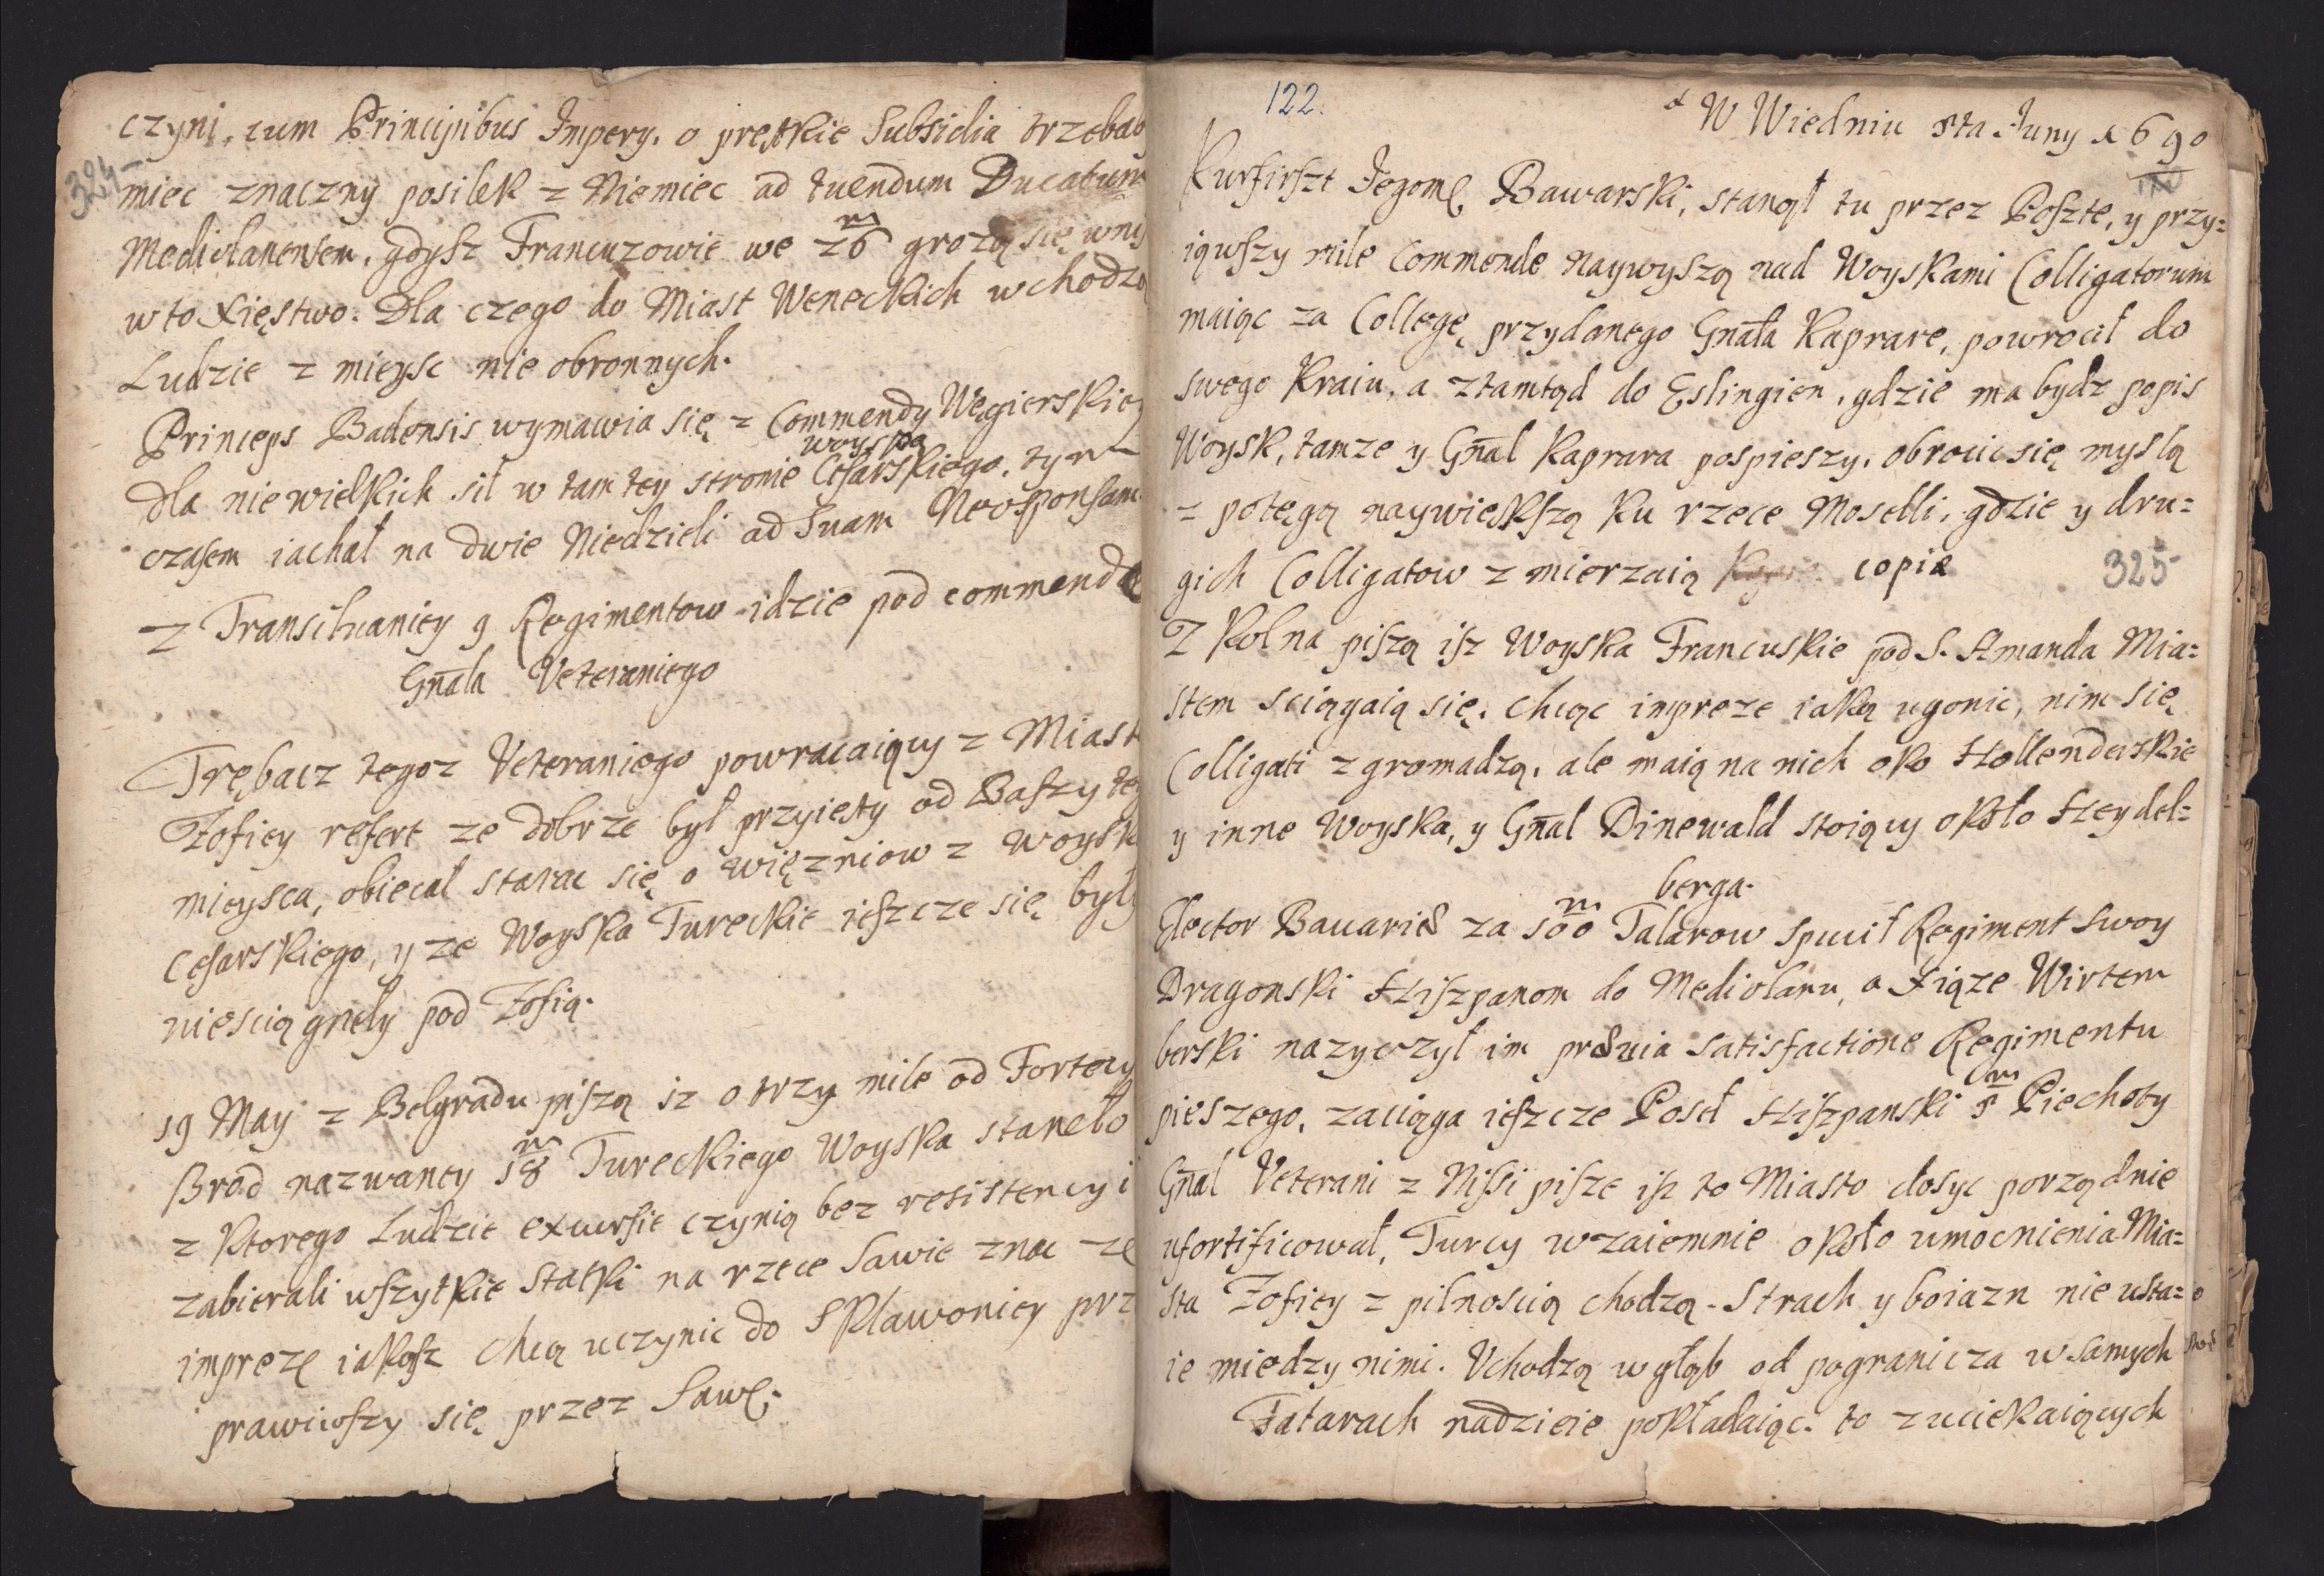 324
czyni, cum Principibus Impery. o prętkie Subsidia trzeba
miec znaczny posilek z Niemiec ad tuendum Ducatum
Mediolanensem, gdysz Francuzowie we 26 m grozą się wni
w to Xięstwo. Dla czego do Miast Weneckich wchodzą
Ludzie z mieysc nie obronnych.
Princeps Badensis wymawia się z Commendy Węgierskie
dla niewielkich sił w tamtey stronie woyska Cesarskiego, tym
czasem iachał na dwie Niedzieli ad Suam Neosponsam
Z Transilvaniey 9 Regimentow idzie pod commendą
Gnała Veteraniego
Trębacz tegoz Veteraniego powracaiący z Miast
Zofiey refert ze dobrze był przyięty od Baszy te
mieysca, obiecał starac się o więzniow z woysk
Cesarskiego, y ze Woyska Tureckie ieszcze się były
niesciągneły pod Zofią.
19 May z Belgradu piszą iz o trzy mile od Fortecy
Brod nazwaney 18 m Tureckiego Woyska staneło
z Ktorego Ludzie excursie czynią bez resistencyi
zabierali wszytkie Statki na rzece Sawie znac ze
imprezę iakąsz chcą uczynic do Sklawoniey prz
prawiwszy się przez Sawę.
122.
W Wiedniu 8ta Juny 1690
Kurfirszt Jegomę Bawarski, stanął tu przez Posztę, y przy=
iąwszy mile Commende naywyszą nad Woyskami Colligatorum
maiąc za Collegę przydanego Gnała Kaprare, powrocił do
swego Kraiu, a ztamtąd do Eslingien, gdzie ma bydz popis
Woysk, tamze y Gnał Kaprara pospieszy. obrocic się myslą
z potęgą naywiekszą Ku rzece Moselli, gdzie y dru=
gich Colligatow zmierzaią copiæ
325
Z Kolna piszą isz Woyska Francuskie pod S. Amanda Mia=
stem sciągaią się. chcąc impreze iaką ugonic, nim się
Colligati zgromadzą, ale maią na nich oko Hollenderskie
y inne Woyska, y Gnał Dinewald stoiący około Heydel=
berga.
Elector Bavariæ za 100 m Talarow spuscił Regiment swoy
Dragonski Hiszpanom do Mediolanu, a Xiąze Wirtem
berski nazyczył im prævia satisfactione Regimentu
pieszego, zaciąga ieszcze Poseł Hiszpanski 8 m Piechoty
Gnał Veterani z Nissi pisze isz to Miasto dosyc porządnie
ufortificował, Turcy wzaiemnie około umocnienia Mia=
sta Zofiey z pilnoscią chodzą. Strach y boiazn nie usta=
ie miedzy nimi. Uchodzą w głąb od pogranicza w samych
Tatarach nadzieie pokładaiąc. to z uciekaiących